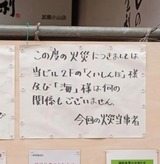 武蔵小山店
この度の火災につきましては
当ビル2Fの「くいしんぼ」様
及び「海」様は何の
関係もございません。
今回の火災当事者